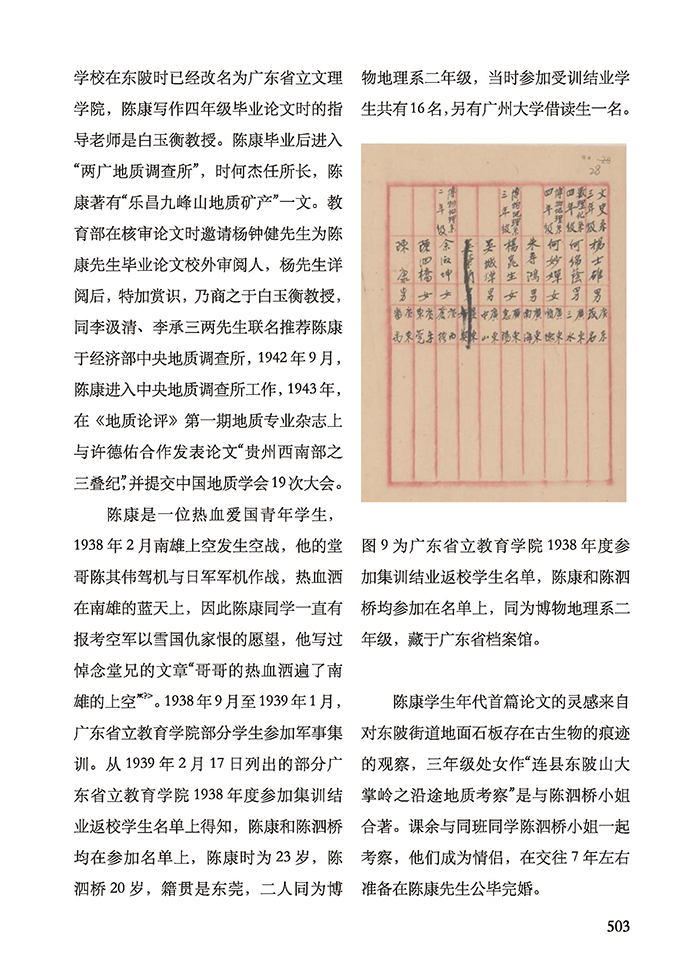 学校在东陂时已经改名为广东省立文理
学院，陈康写作四年级毕业论文时的指
导老师是白玉衡教授。陈康毕业后进入
“两广地质调查所”，时何杰任所长，陈
康著有“乐昌九峰山地质矿产”一文。教
育部在核审论文时邀请杨钟健先生为陈
康先生毕业论文校外审阅人，杨先生详
阅后，特加赏识，乃商之于白玉衡教授，
同李汲清、李承三两先生联名推荐陈康
于经济部中央地质调查所，1942 年 9 月，
陈康进入中央地质调查所工作，1943 年，
在《地质论评》第一期地质专业杂志上
与许德佑合作发表论文“贵州西南部之
三叠纪”，并提交中国地质学会 19 次大会。
陈康是一位热血爱国青年学生，
1938 年 2 月南雄上空发生空战，他的堂
哥陈其伟驾机与日军军机作战，热血洒
在南雄的蓝天上，因此陈康同学一直有
报考空军以雪国仇家恨的愿望，他写过
悼念堂兄的文章“哥哥的热血洒遍了南
雄的上空”。1938 年 9 月至 1939 年 1 月，
广东省立教育学院部分学生参加军事集
训。从 1939 年 2 月 17 日列出的部分广
东省立教育学院 1938 年度参加集训结
业返校学生名单上得知，陈康和陈泗桥
均在参加名单上，陈康时为 23 岁，陈
泗桥 20 岁，籍贯是东莞，二人同为博
物地理系二年级，当时参加受训结业学
生共有 16 名，另有广州大学借读生一名。
28
文史系三年级 杨士雄 男 广东茂名
数理化系四年级 何绵荫 女 广东三水
博物地理系四年级 何妙婵 女 广东顺德
朱寿鸿 男 广东南海
博物地理系三年级 杨昆生 女 广东
吴城津 男 广东中山
博物地理系二年级 余汝坤 女
陈泗桥 女 广东东莞
陈康 男 广东番禺
图 9 为广东省立教育学院 1938 年度参
加集训结业返校学生名单，陈康和陈泗
桥均参加在名单上，同为博物地理系二
年级，藏于广东省档案馆。
陈康学生年代首篇论文的灵感来自
对东陂街道地面石板存在古生物的痕迹
的观察，三年级处女作“连县东陂山大
掌岭之沿途地质考察”是与陈泗桥小姐
合著。课余与同班同学陈泗桥小姐一起
考察，他们成为情侣，在交往 7 年左右
准备在陈康先生公毕完婚。
503